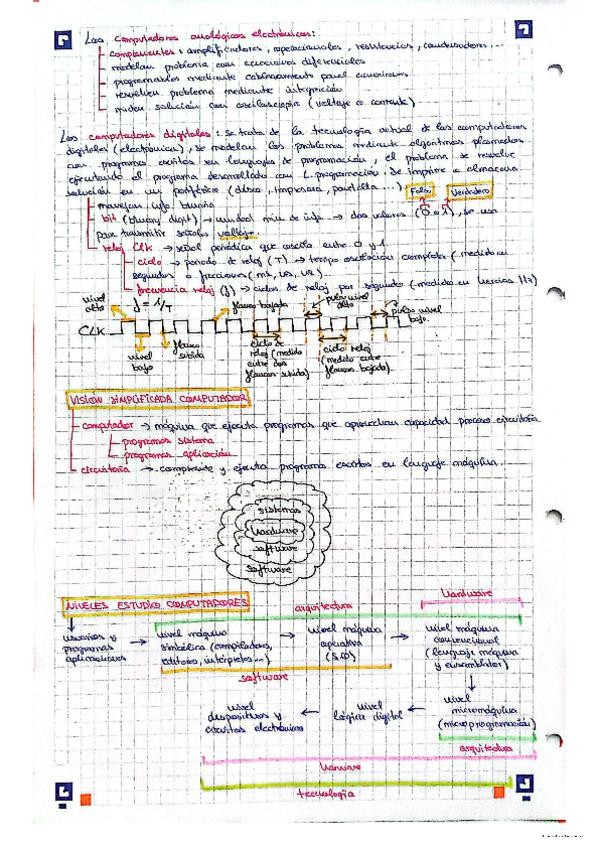 Los computadores analógicos electrónicos:
componentes: amplificadores, operacionales, resistencias, condensadores...
modelan problema con ecuaciones diferenciales
programables mediante cableamiento panel conexiones
resuelven problema mediante integración
miden solución con osciloscopio (voltaje o corriente)
Los computadores digitales: se trata de la tecnología actual de los computadores
digitales (electrónica), se modelan los problemas mediante algoritmos plasmados
con programas escritos en lenguajes de programación, el problema se resuelve
ejecutando el programa desarrollado con L. programación. Se imprime o almacena
solución en un periférico (disco, impresora, pantalla...)
Falso Verdadero
manejan info binaria
bit (binary digit) → unidad min de info. → dos valores (0 o 1), se usa
para transmitir señales voltaje.
reloj Clk → señal periódica que oscila entre 0 y 1.
ciclo → periodo de reloj (T) → tiempo oscilación completa (medido en
segundos o fracciones (ms, us, ns...)
frecuencia reloj (f) → ciclos de reloj por segundo (medido en hercios Hz)
nivel alto
f = 1/T
flanco bajada
pulso nivel alto
pulso nivel bajo.
CLK
nivel bajo
flanco subida
ciclo de reloj (medido entre dos flancos subida)
ciclo reloj (medido entre flancos bajada).
VISIÓN SIMPLIFICADA COMPUTADOR
computador → máquina que ejecuta programas que aprovechan capacidad proceso circuitería
programas sistema
programas aplicación
circuitería → comprende y ejecuta programas escritos en lenguaje máquina.
sistemas
hardware
software
software
NIVELES ESTUDIO COMPUTADORES
arquitectura
hardware
usuarios y programas aplicaciones
nivel máquina simbólica (compiladores, editores, intérpretes...)
nivel máquina operativa (S.O)
nivel máquina convencional (lenguaje máquina y ensamblador)
software
nivel dispositivos y circuitos electrónicos
nivel lógica digital
nivel micromáquina (microprogramación)
arquitectura
harware
tecnología